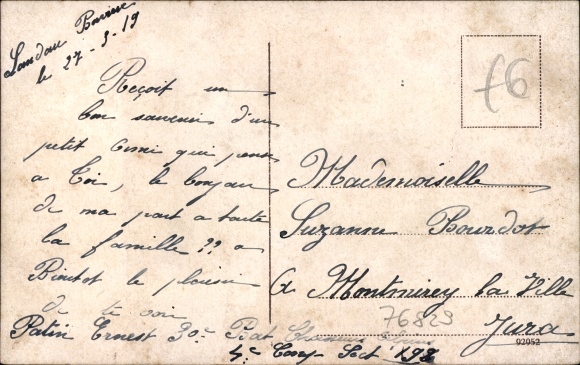 Landau Bavière
le 27-3-19
Reçoit un
bon souvenir d'un
petit Ami qui pense
a Toi, le bonjour
de ma part a toute
la famille ?? a
Bientot le plaisir
de te voir
Patin Ernest 30e Bat Chasseurs
4e Comp Sect 198
16
Mademoiselle
Suzanne Bourdot
a Montmirey la Ville
76829
Jura
02052